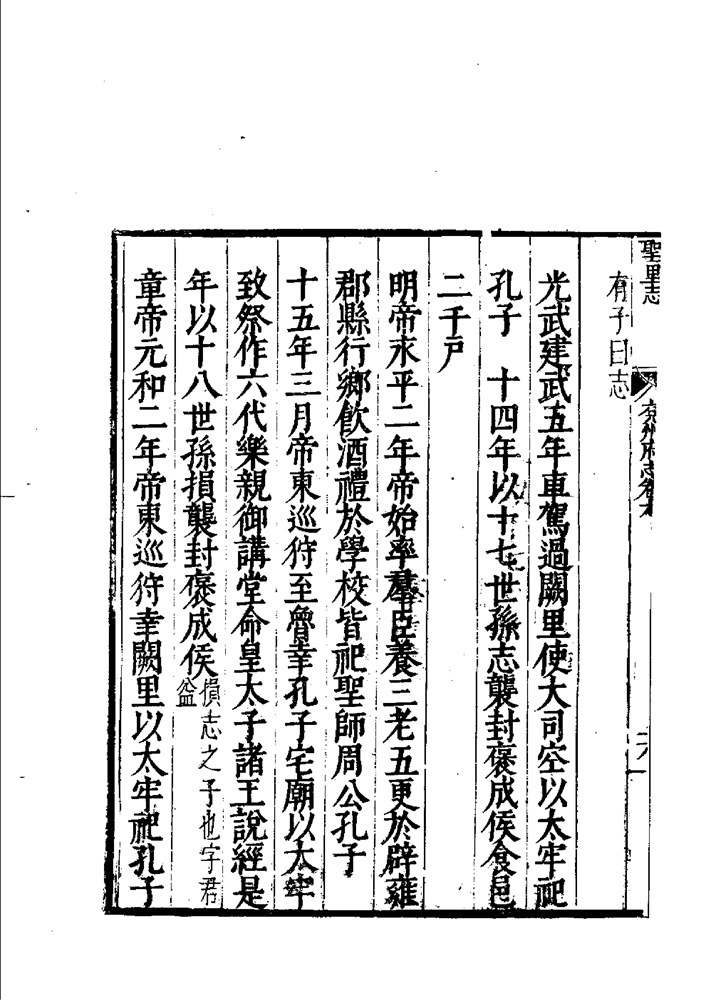 聖里志
兗州府志卷六
有子曰志
光武建武五年車駕過闕里使大司空以太牢祀
孔子　十四年以十七世孫志襲封褒成侯食邑
二千戶
明帝永平二年帝始率羣臣養三老五更於辟雍
郡縣行鄉飲酒禮於學校皆祀聖師周公孔子
十五年三月帝東巡狩至魯幸孔子宅廟以太牢
致祭作六代樂親御講堂命皇太子諸王說經是
年以十八世孫損襲封褒成侯損志之子也字君益
童帝元和二年帝東巡狩幸闕里以太牢祀孔子